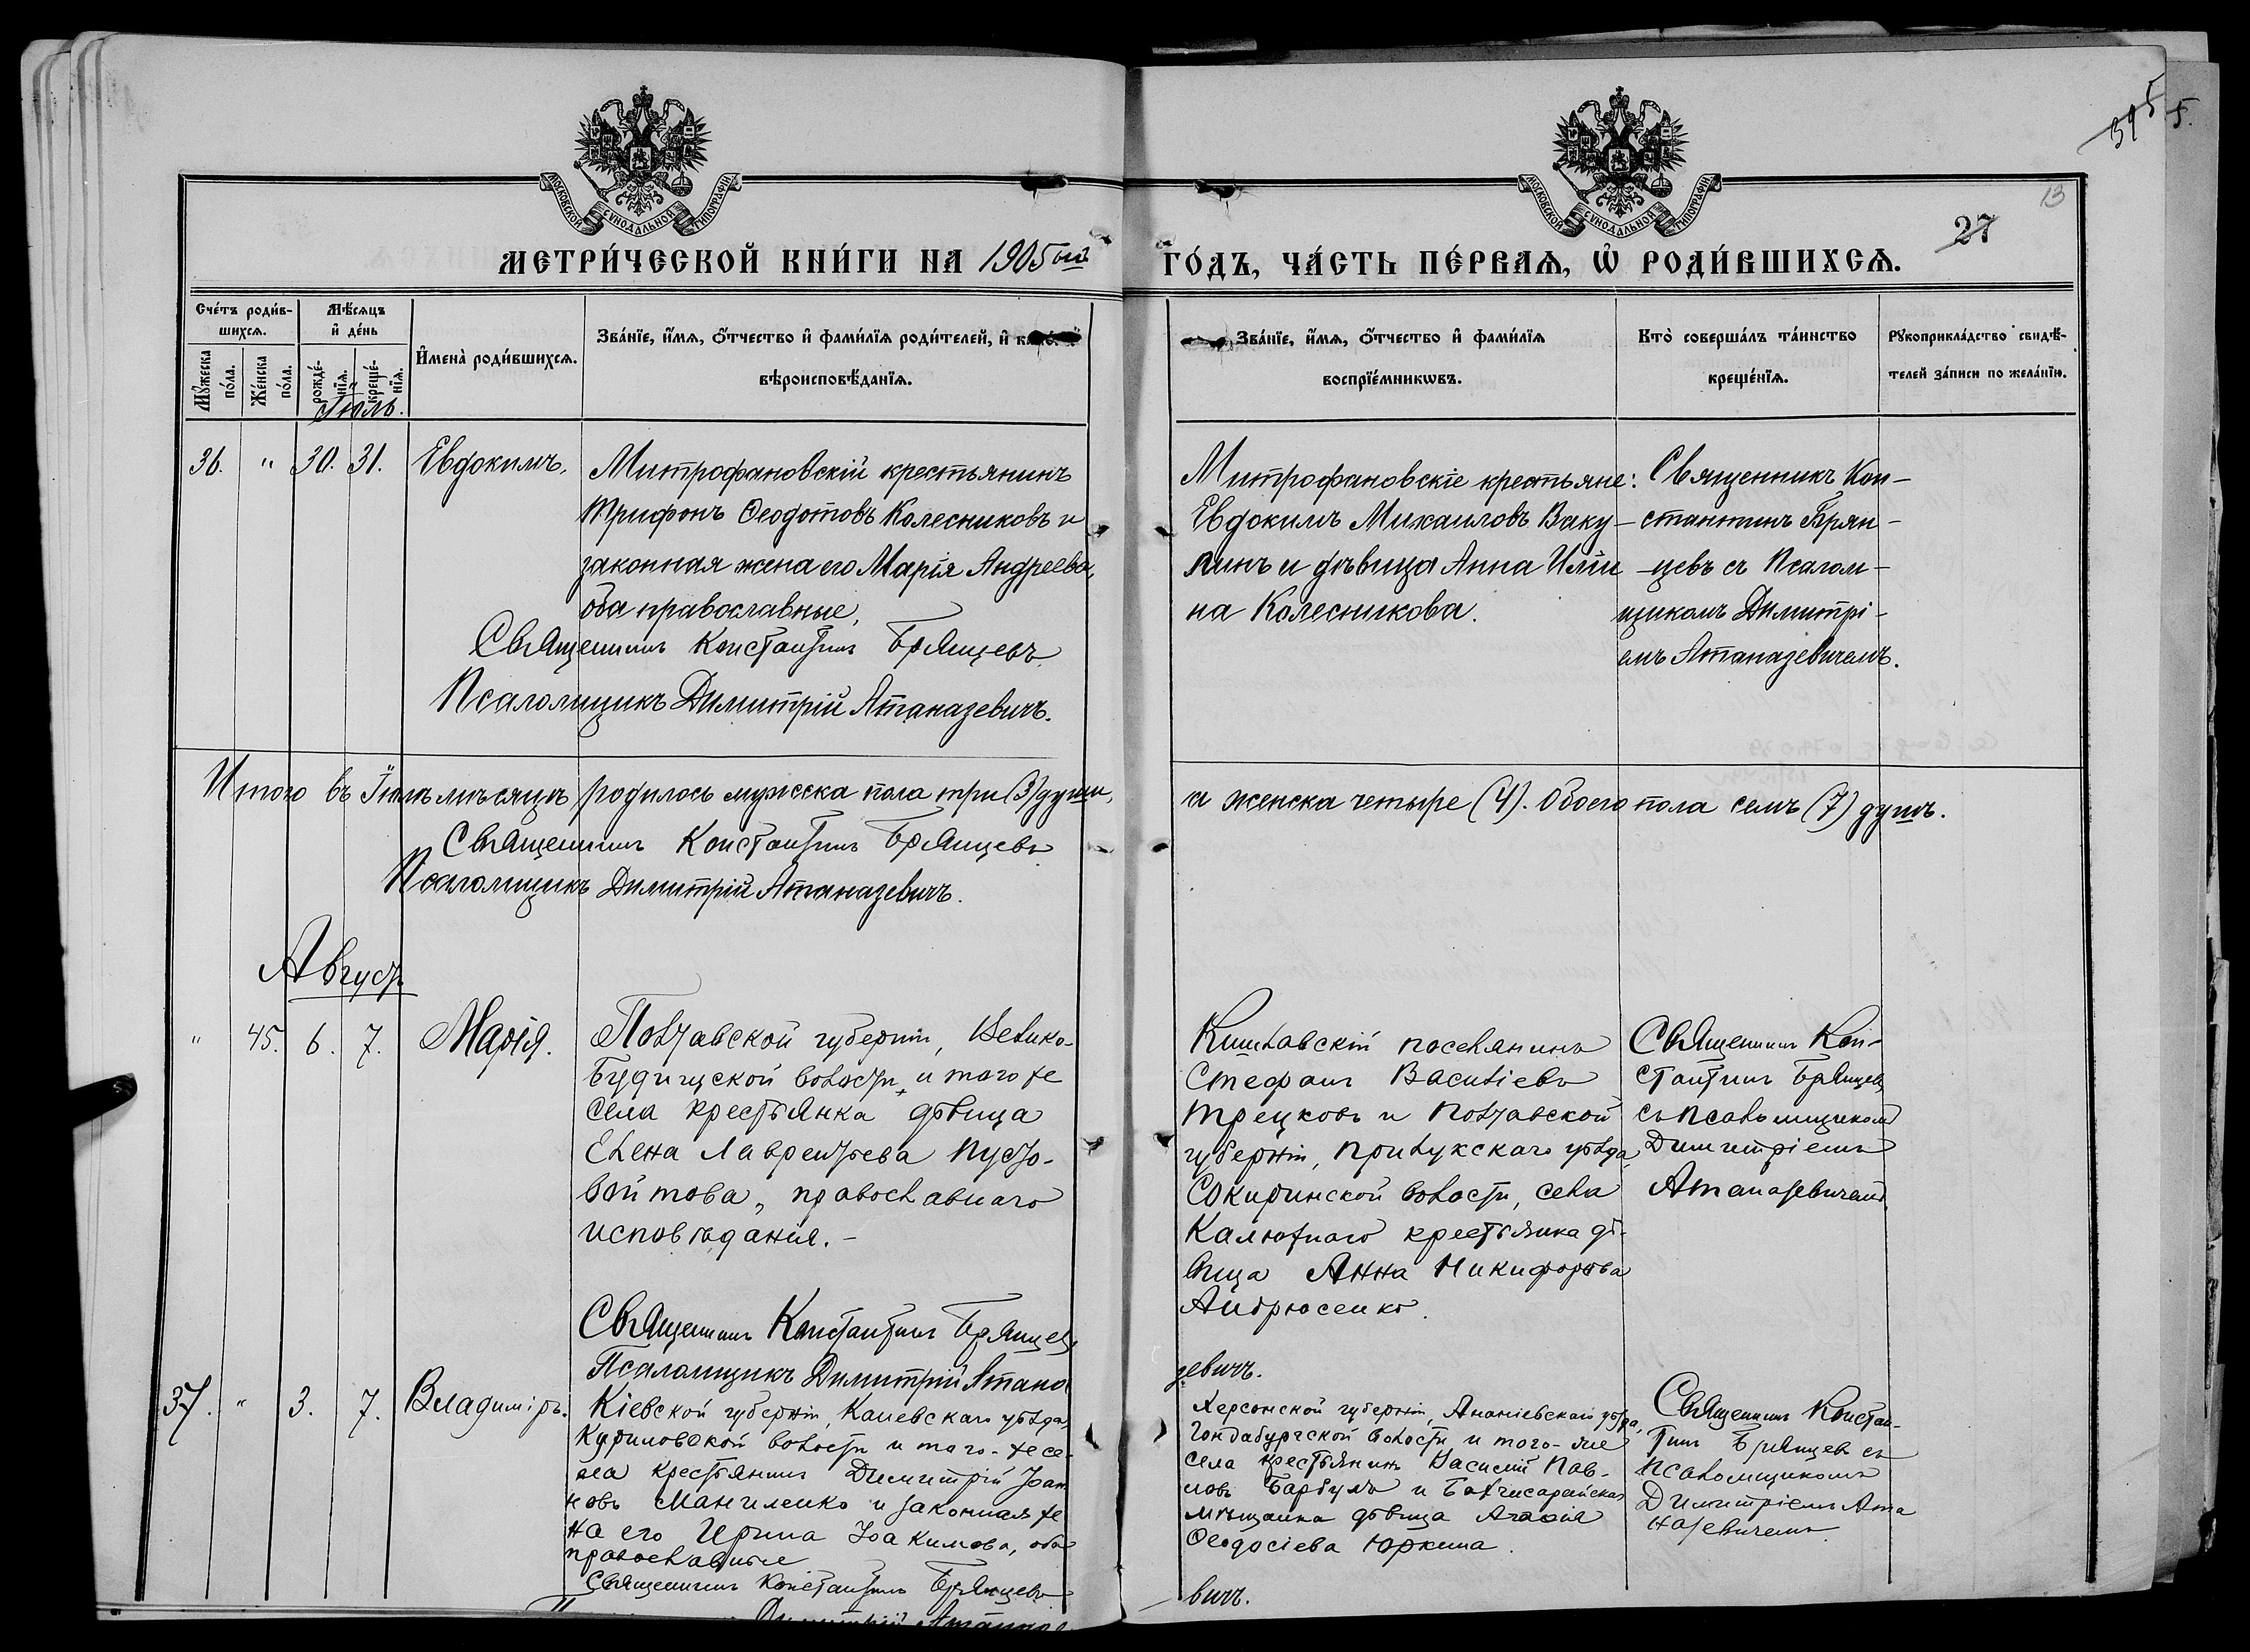 395 5.
13
27
МОСКОВСКОЙ СУНОДАЛЬНОЙ ТИПОГРАФІИ
МОСКОВСКОЙ СУНОДАЛЬНОЙ ТИПОГРАФІИ
МЕТРИ́ЧЕСКОЙ КНИ́ГИ НА 1905ый ГО́ДЪ, ЧА́СТЬ ПЕ́РВАѦ, Ѡ҆ РОДИ́ВШИХСѦ.
Сче́тъ роди́в-
шихсѧ.
Мꙋ́жеска
по́ла.
Же́нска
по́ла.
Мѣ́сѧцъ
и҆ де́нь
рожде́-
нїѧ.
креще́-
нїѧ.
Іюль.
И҆мена̀ роди́вшихсѧ.
Зва́нїе, и҆́мѧ, ѻ҆́тчество и҆ фами́лїѧ роди́телей, и҆
вѣроисповѣ́данїѧ.
Зва́нїе, и҆́мѧ, ѻ҆́тчество и҆ фами́лїѧ
воспрїе́мникѡвъ.
Кто̀ соверша́лъ та́инство
креще́нїѧ.
Рꙋкоприкла́дство свидѣ́-
телей за́писи по жела́нїю.
36. " 30. 31. Евдокимъ.
Митрофановскій крестьянинъ
Трифонъ Ѳеодотовъ Колесниковъ и
законная жена его Марія Андреева,
оба православные.
Священникъ Константинъ Брянцевъ
Псаломщикъ Димитрій Атаназевичъ.
Митрофановскіе крестьяне:
Евдокимъ Михаиловъ Ваку-
линъ и дѣвица Анна Ильи
на Колесникова.
Священникъ Кон-
стантинъ Брян-
цевъ съ Псалом-
щикомъ Димитрі-
емъ Атаназевичемъ.
Итого въ Іюлѣ мѣсяцѣ родилось мужска пола три (3) души, и женска четыре (4). Обоего пола семь (7) душъ.
Священникъ Константинъ Брянцевъ
Псаломщикъ Димитрій Атаназевичъ.
Августъ
" 45. 6. 7. Марія.
Полтавской губерніи, Велико-
Будищской волости и того же
села крестьянка дѣвица
Елена Лаврентьева Пусто-
войтова, православнаго
исповѣданія. -
Священникъ Константинъ Брянцевъ
Псаломщикъ Димитрій Атана
зевичъ.
Кишлавскій поселянинъ
Стефанъ Василіевъ
Трецковъ и Полтавской
губерніи, Прилукскаго уѣзда
Сокиринской волости, села
Калюжнаго крестьянка дѣ-
вица Анна Никифорова
Андрюсенко.
Священникъ Кон-
стантинъ Брянцевъ
съ псаломщикомъ
Димитріемъ
Атаназевичемъ.
37. " 3. 7. Владиміръ.
Кіевской губерніи, Каневскаго уѣзда,
Куриловской волости и того-же се-
ла крестьянинъ Димитрій Іоан
новъ Мангиленко и законная же
на его Ирина Іоакимова, оба
православные
Священникъ Константинъ Брянцевъ
Димитрій Атаназе
вичъ.
Херсонской губерніи, Ананіевскаго уѣзда,
Гандабургской волости и того-же
села крестьянинъ Василій Пав-
ловъ Барбулъ и Бахчисарайская
мѣщанка дѣвица Агафія
Ѳеодосіева Юркина.
Священникъ Констан-
тинъ Брянцевъ съ
Псаломщикомъ
Димитріемъ Ата
назевичемъ